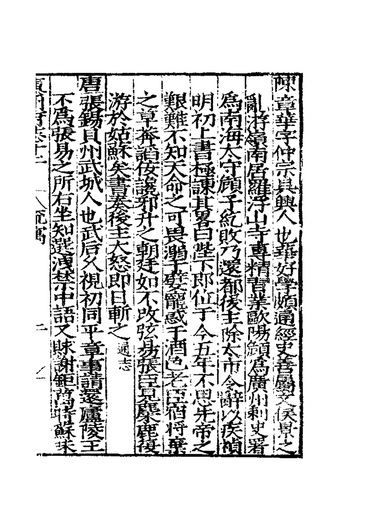 陳章華字仲宗吳興人也華好學頗通經史善屬文侯景之
亂遊嶺南居羅浮山寺專精習業歐陽頠爲廣州刺史署
爲南海太守頠子紇敗乃還都後主除太市令辭以疾禎
明初上書極諫其畧曰陛下即位于今五年不思先帝之
艱難不知天命之可畏溺于嬖寵惑于酒色老臣宿將棄
之草莽諂佞讒邪升之朝廷如不改弦易張臣見麋鹿復
游於姑蘇矣書奏後主大怒即日斬之通志
唐張錫貝州武城人也武后久視初同平章事請還廬陵王
不爲張易之所右坐知選洩禁中語又賕謝鉅萬時蘇味